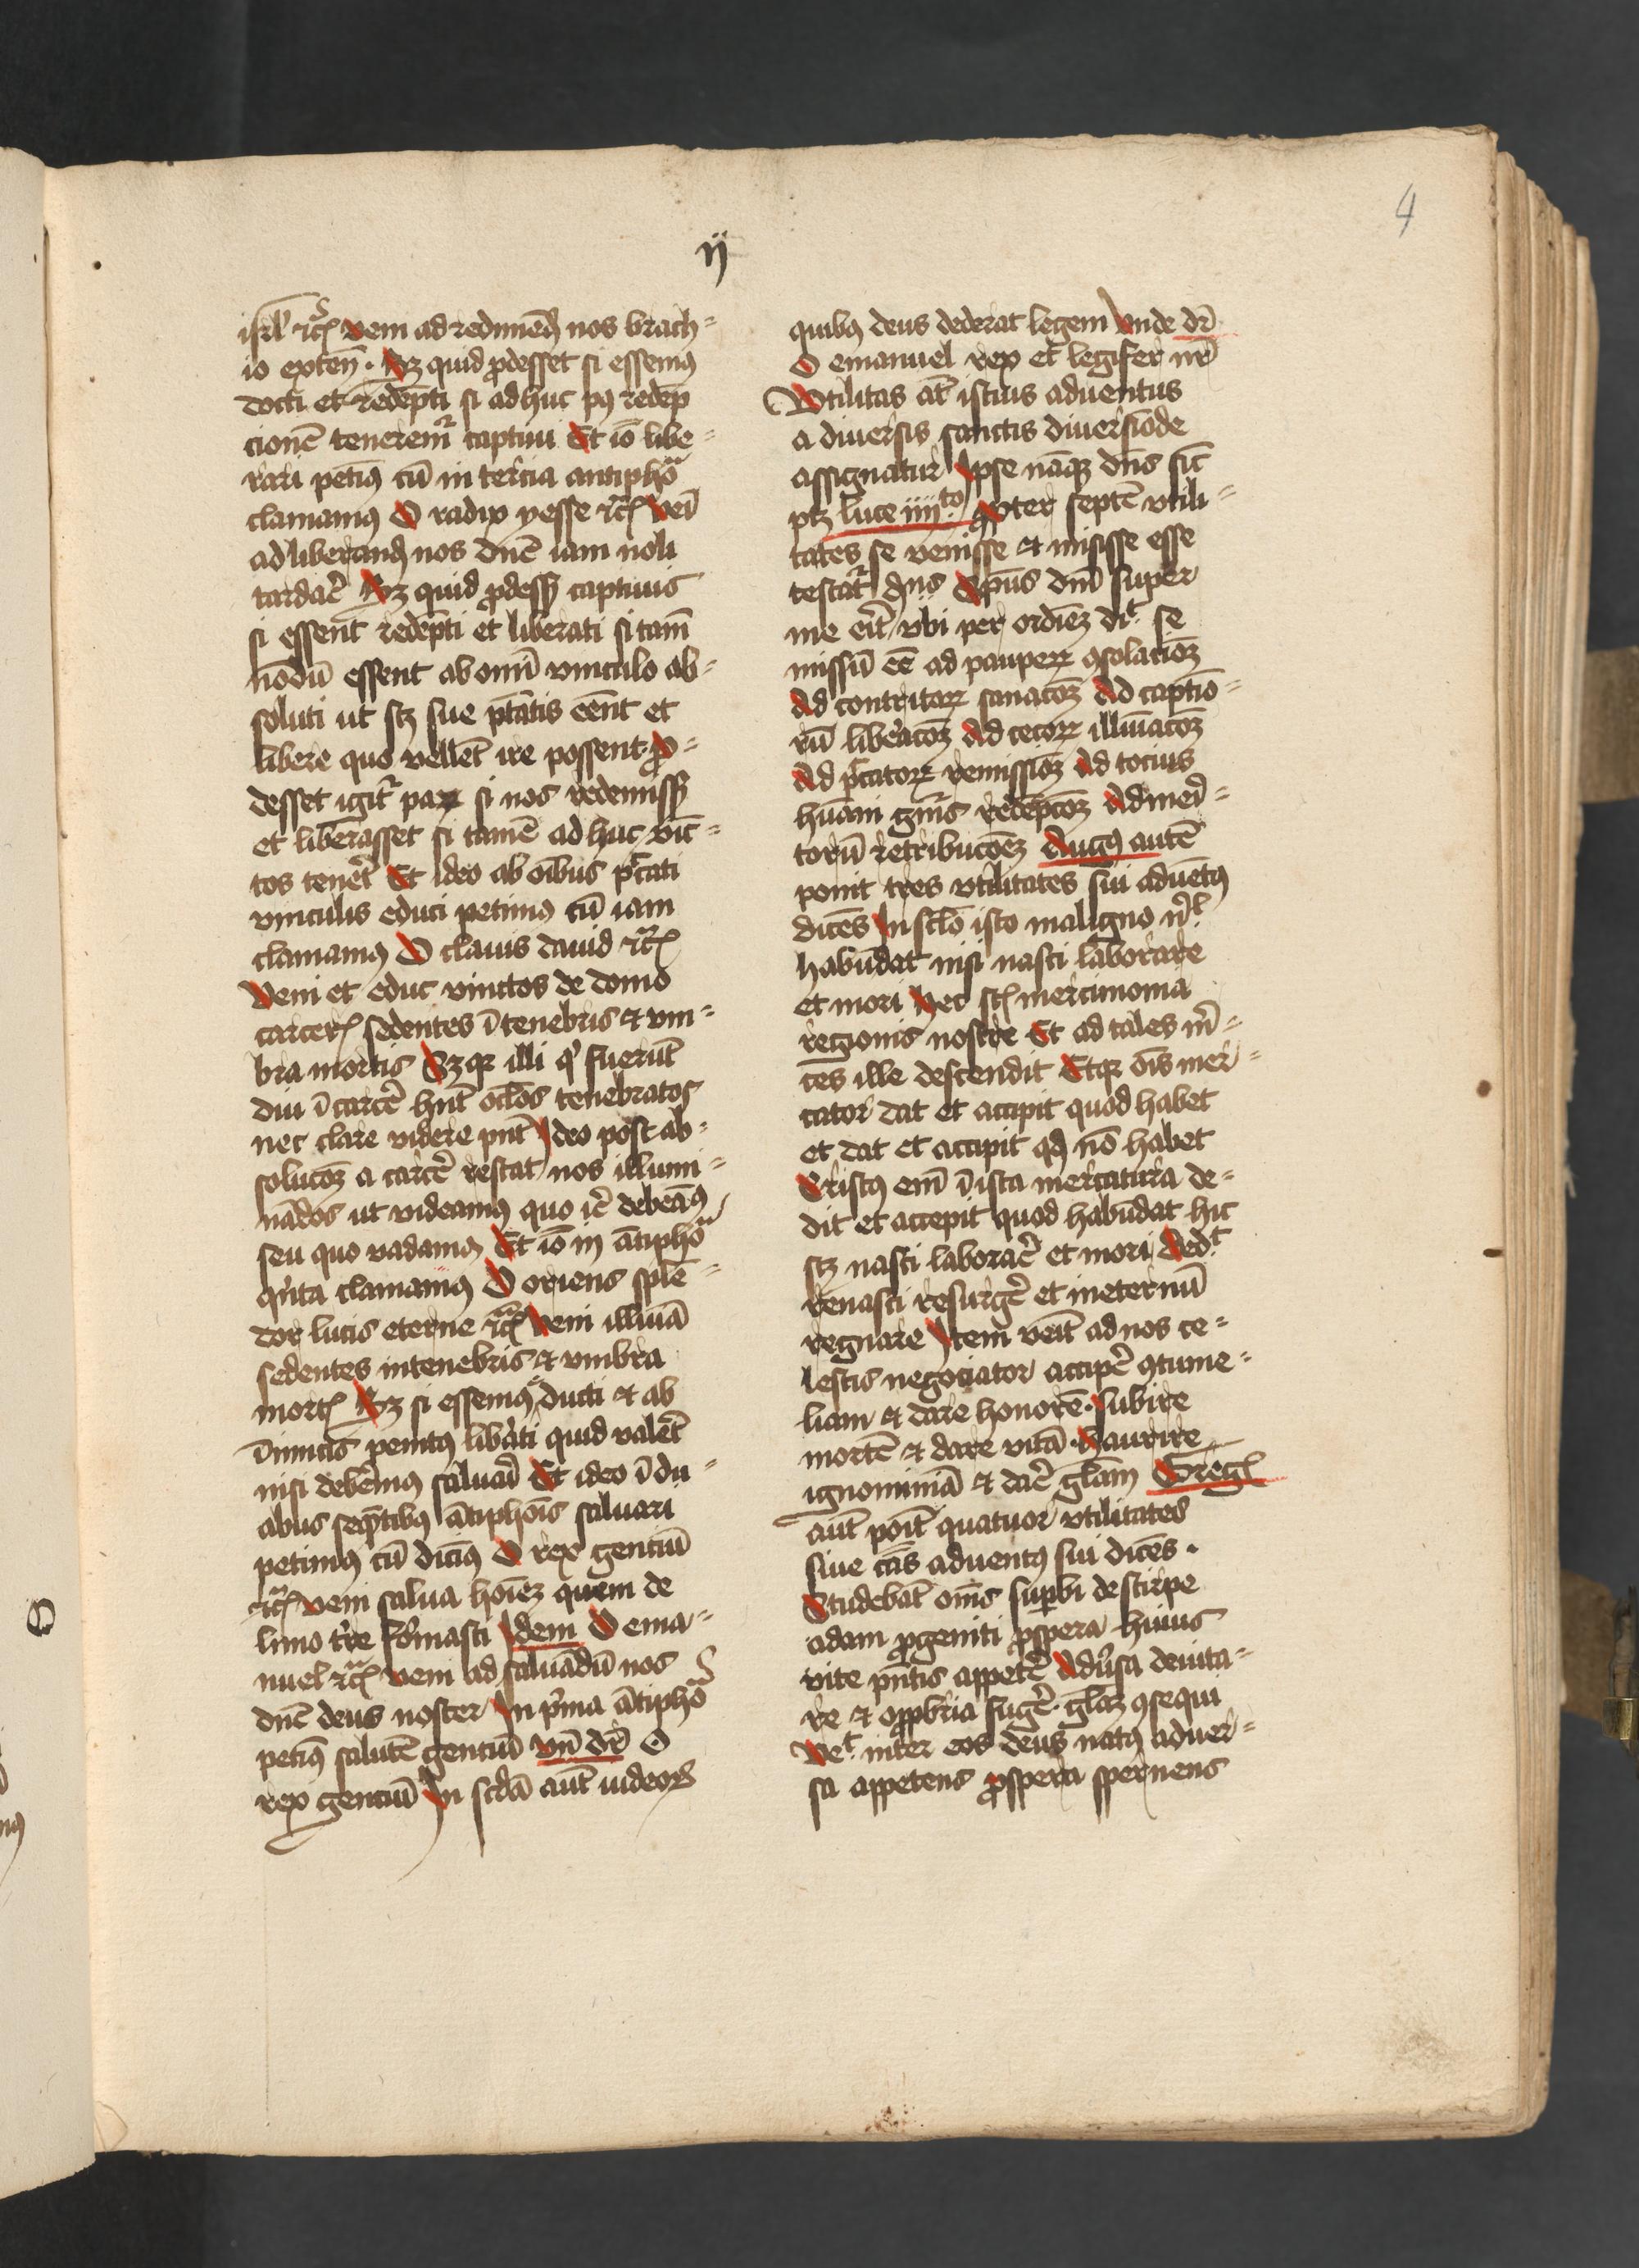 4
ij
isrl' etc veni ad redimend nos brach=
io exten̄. Sz quid ꝓdesset si essemꝰ
docti et redēpti si adhuc pꝰ redēp
cionē teneremr̄ captiui Et iō libe=
rari petimꝰ cū in tercia antiphōa
clamamꝰ O radix yesse etc veī
ad liberand nos dn̄e iam noli
tardar̄e Sz quid ꝓdess; captiuis
si essent redēpti et liberati si tam̄
nōdū essent ab omī vinculo ab=
soluti ut scz sue ptātis eēnt et
libere quo vellēt ire possent ꝓ=
desset igitr̄ parꝝ si nos redemiss;
et liberasset si tamē ad huc vīc=
tos tenēr̄t Et ideo ab oībus pc̄cati
vinculis educi petimꝰ cū iam
clamamꝰ O clauis dauid etc
Veni et educ vinctos de domo
carcerꝭ sedentes ī tenebris et vm=
bra mortis Sz qꝛ illi qͥ fuerūt
diu ī carcēr hn̄t oc̄los tenebratos
nec clare videre pn̄t Ideo post ab=
solucōz a carcēr restat nos illumi=
nādos ut videamꝰ quo ir̄e debeāꝰ
seu quo vadamꝰ Et iō in ātiphōa
qͥnta clamamꝰ O oriens splē=
dor lucis eterne etc veni illuīa
sedentes in tenebris et vmbra
mortꝭ Sz si essemꝰ ducti et ab
īimicis penitꝰ libāti quid valēt
nisi debem̄us saluari Et ideo ī du=
abus seq̄ntibꝰ ātiphoīs saluari
petimꝰ cū dicimꝰ O rex genciū
etc veni salua hoīez quem de
limo tr̄re formasti Idem O ema=
nuel etc veni ad saluādū nos
dn̄e deus noster In pͥma ātiphōa
petimꝰ salutē genciū vn̄ dr̄ O
rex genciū In scd̄a aut̄ iudeoꝝ
quibꝰ deus dederat legem Vnde dr̄
O emanuel rex et legifer nr̄
Vtilitas āt istius aduentus
a diuersis sanctis diuersiōde
assignatur Ipse nāqꝫ dn̄s sic̄
ptz luce iiijto ꝓpter septē vtili=
tates se venisse et misisse esse
testatr̄ dn̄s Spūs dn̄i super
me etc vbi per ordinez dic̄t se
missū eē ad pauperꝝ ꝯsolacioz
Ad contritoꝝ sanacōz Ad captiuo=
rū liberacōz Ad cecoꝝ illuīacōz
Ad pc̄catoꝝ remissioz Ad tocius
hūani gn̄is redēpcōz Ad meri=
torū retribucōez Augꝰ autē
ponit tres vtilitates sui aduētꝰ
dicēs In sc̄lo isto maligno nͥl
habūdat nisi nasci laborare
et mori Hec st̄ mercimonia
regionis nostre Et ad tales mr̄=
ces ille descendit Et qꝛ oīs mer=
cator dat et accipit quod habet
et dat et accipit qd nō habet
Cristꝰ em̄ ī ista mercatura de=
dit et accepit quod habūdat hic
scz nasci laborar̄e et mori Dedit
renasci resurgēr et in eternū
regnare Item veīt ad nos ce=
lestis negociator accipēr ꝯtume=
liam et dare honorē. Subire
mortē et dare vitā. Haurire
ignominiā et dar̄e gl̄am Gregꝰ
aut̄ poīt quatuor vtilitates
siue cās aduentꝰ sui dicēs.
Studebāt om̄s suꝑbi de stirpe
adam ꝓgeniti ꝓspera huius
vite pn̄tis appetēr Aduersa deuita=
re et opprobria fugēr. gl̄az ꝯsequi
Veīt inter eos deus natꝰ aduer=
sa appetens ꝓspera spernens